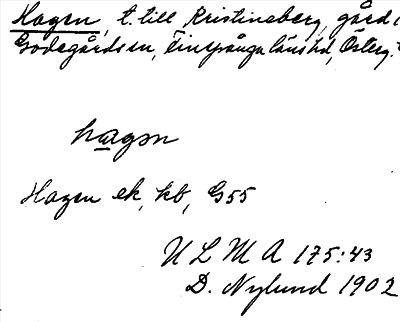 Hagen, t. till Kristineberg, gård i
Godegårds sn, Finspånga läns hd, Österg.
hagən
Hagen ek, kb, G55
ULMA 175:43
D. Nylund 1902